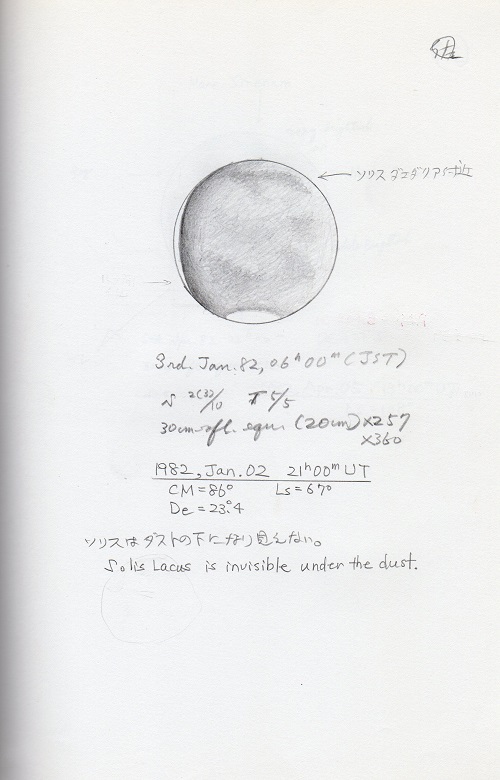 ソリス ダエダリア付近
3rd. Jan. 82, 06h00m (JST)
2(3)/10 T 5/5
30cm refl. equ. (20cm) ×257
×360
1982, Jan. 02 21h00m UT
CM=86° Ls=67°
De=23.°4
ソリスはダストの下になり見えない。
Solis Lacus is invisible under the dust.